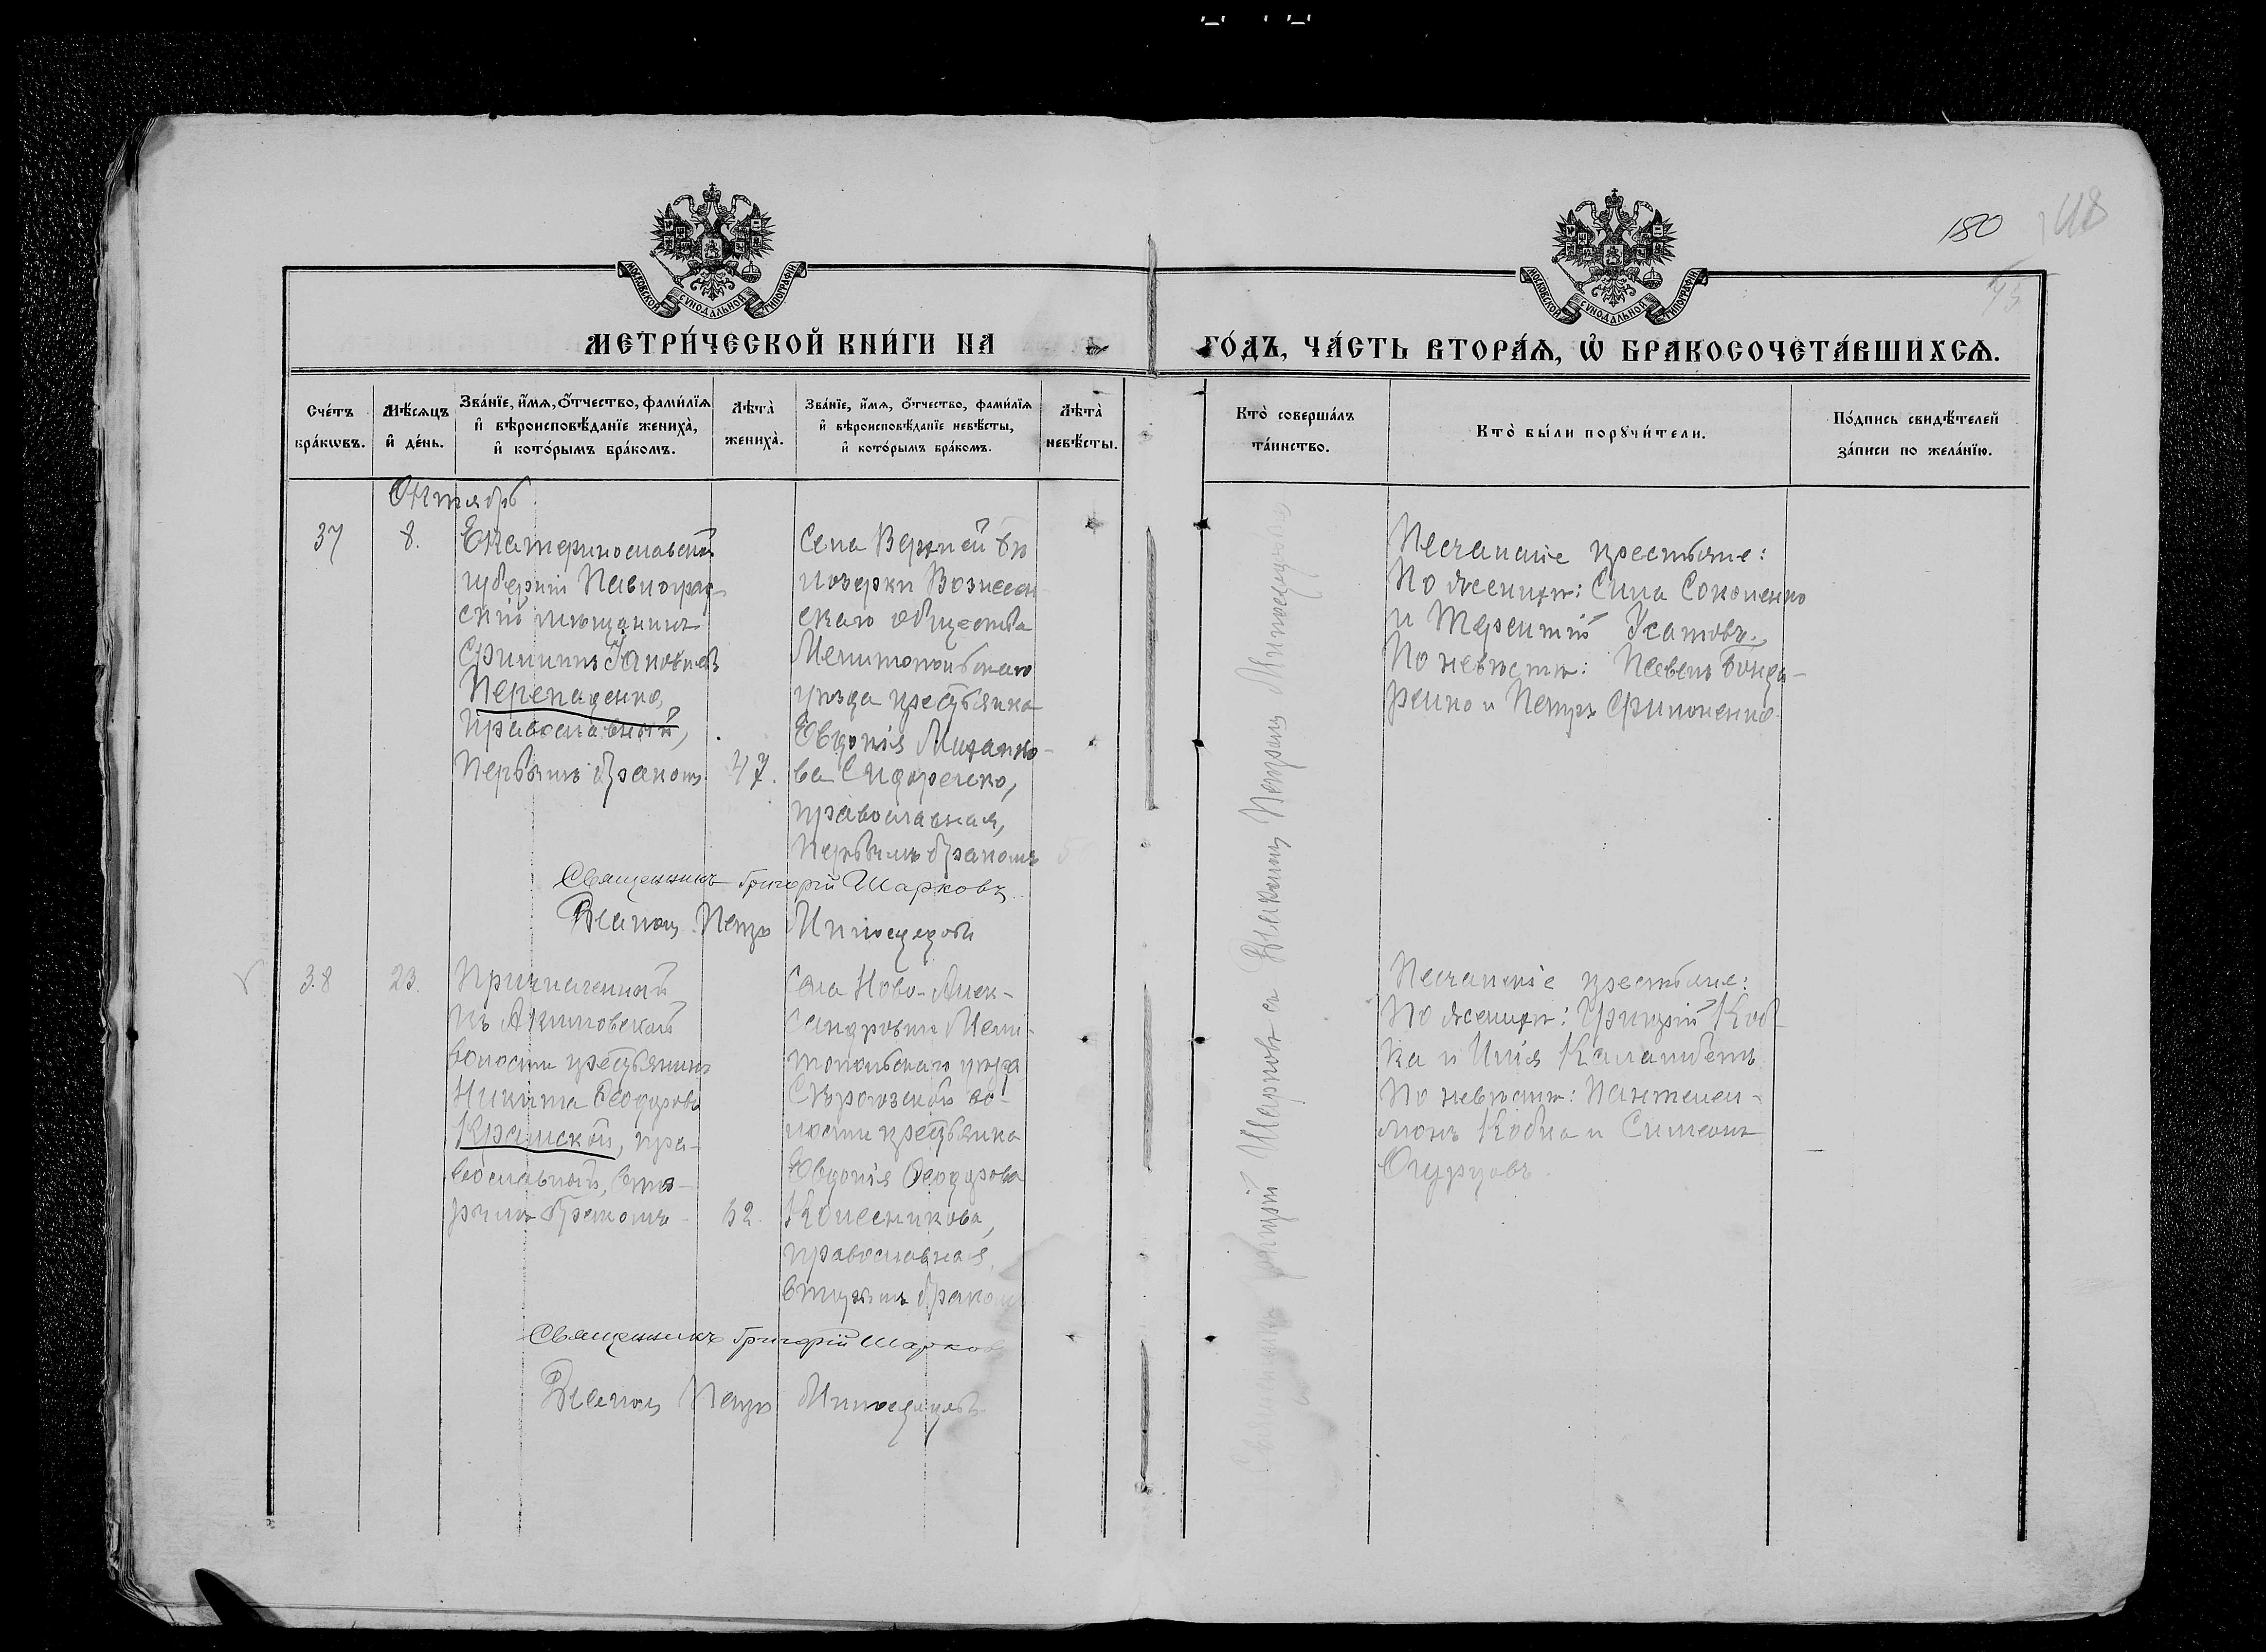 180
148
МОСКОВСКОЙ СѴНОДАЛЬНОЙ ТИПОГРАФІИ
МОСКОВСКОЙ СѴНОДАЛЬНОЙ ТИПОГРАФІИ
МЕТРИ́ЧЕСКОЙ КНИ́ГИ НА
ГО́ДЪ, ЧА́СТЬ ВТОРА́Ѧ, Ѡ҆ БРАКОСОЧЕТА́ВШИХСѦ.
Сче́тъ
бра́кѡвъ.
Мѣ́сяцъ
и҆ де́нь.
Зва́нїе, и҆́мѧ, ѻ҆́тчество, фами́лїѧ
и҆ вѣроисповѣ́данїе жениха̀,
и҆ кото́рымъ бра́комъ.
Лѣта̀
жениха̀.
Зва́нїе, и҆́мѧ, ѻ҆́тчество, фами́лїѧ
и҆ вѣроисповѣ́данїе невѣ́сты,
и҆ кото́рымъ бра́комъ.
Лѣта̀
невѣ́сты.
Кто̀ соверша́лъ
та́инство.
Кто̀ бы́ли порꙋчи́тели.
По́дпись свидѣ́телей
за́писи по жела́нїю.
Октябрь
37
8.
Екатеринославской
губерніи Павлоград-
скій мѣщанинъ
Филиппъ Іаковлевъ
Перепаденко,
православный,
первымъ бракомъ
47.
Села Верхней Бѣ
лозерки Вознесен
скаго общества
Мелитопольскаго
уѣзда крестьянка
Евдокія Михаило-
ва Сидоренко,
православная,
первымъ бракомъ
Песчанскіе крестьяне:
По женихѣ: Сила Соколенко
и Терентій Усатовъ.
По невѣстѣ: Павелъ Бонда-
ренко и Петръ Филоненко
Священникъ Григорій Шарковъ
Діаконъ Петръ Милосердовъ
38
23.
Причисленный
къ Акимовской
волости крестьянинъ
Никита Ѳеодоровъ
Крамской, пра-
вославный, вто-
рымъ бракомъ
52.
Села Ново-Алек-
сандровки Мели-
топольскаго уѣзда
Сѣрогозской во-
лости крестьянка
Евдокія Ѳеодорова
Колесникова,
православная,
вторымъ бракомъ
Песчанскіе крестьяне:
По женихѣ: Григорій Коб-
ка и Илія Каламбетъ
По невѣстѣ: Пантелеи-
монъ Кобка и Симеонъ
Огурцовъ.
Священникъ Григорій Шарковъ
Діаконъ Петръ Милосердовъ
Священникъ Григорій Шарковъ съ Діакономъ Петромъ Милосердовымъ